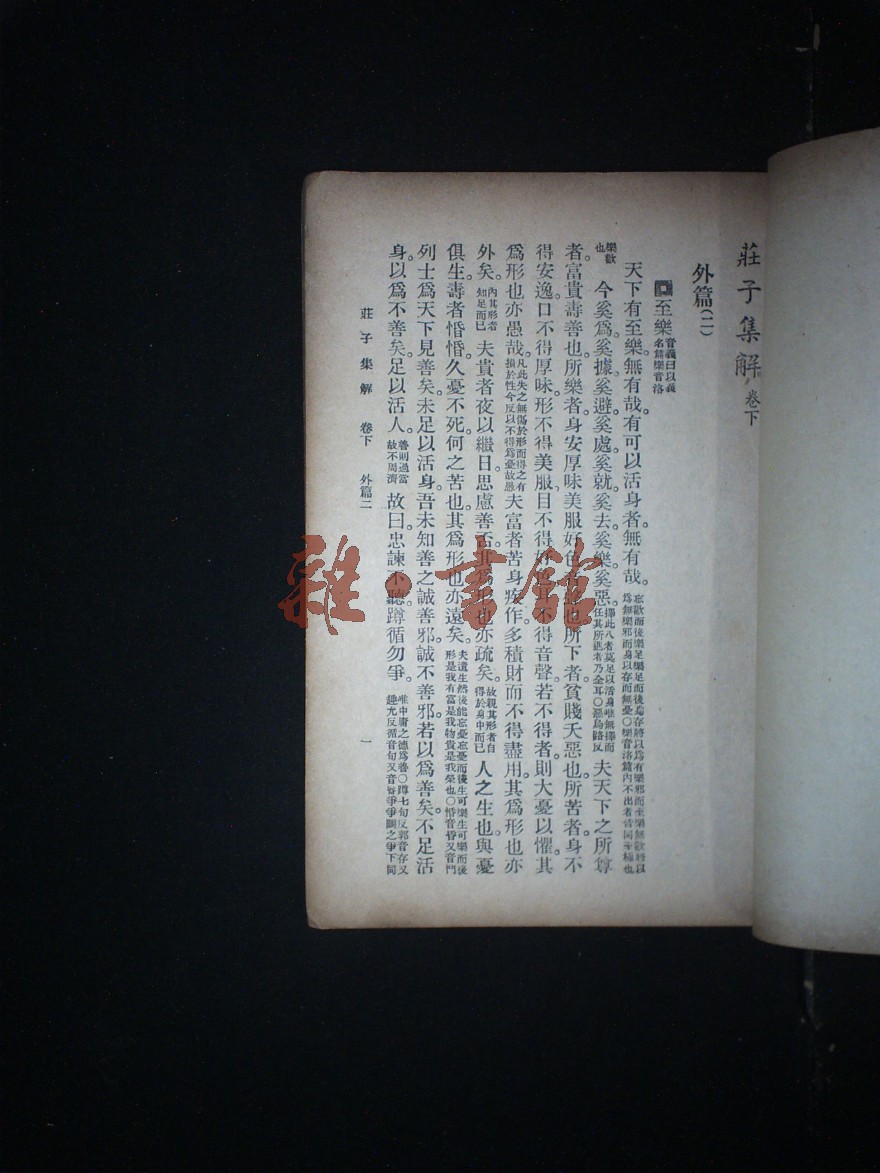 莊子集解 卷下
外篇(二)
至樂 音義曰以義名篇樂音洛
天下有至樂無有哉。有可以活身者。無有哉。忘歡而後樂足樂足而後身存將以為有樂邪而至樂無歡將以為無樂邪而身以存而無憂〇樂音洛篇內不出者皆同至極也
樂歡也 今奚為奚據。奚避奚處。奚就奚去。奚樂奚惡。擇此八者莫足以活身唯無擇而任其所遇者乃全耳〇惡烏路反 夫天下之所尊
者。富貴壽善也。所樂者。身安厚味美服好色音聲也。所下者。貧賤夭惡也。所苦者。身不
得安逸。口不得厚味。形不得美服。目不得好色。耳不得音聲。若不得者。則大憂以懼。其
為形也亦愚哉。凡此失之無傷於形而得之有損於性今反以不得為憂故愚 夫富者苦身疾作。多積財而不得盡用。其為形也亦
外矣。內其形者知足而已 夫貴者夜以繼日。思慮善否。其為形也亦疏矣。故親其形者自得於身中而已 人之生也。與憂
俱生。壽者惛惛。久憂不死。何之苦也。其為形也亦遠矣。夫遺生然後能忘憂忘憂而後生可樂生可樂而後形是我有富是我物貴是我榮也〇惛音昏又音門
列士為天下見善矣。未足以活身。吾未知善之誠善邪。誠不善邪。若以為善矣。不足活
身。以為不善矣。足以活人。善則過當故不周濟 故曰。忠諫不聽。蹲循勿爭。唯中庸之德為善〇蹲七旬反郭音存又趣允反循音旬又音脣爭爭鬭之爭下同
莊子集解 卷下 外篇二 一
雜·書館